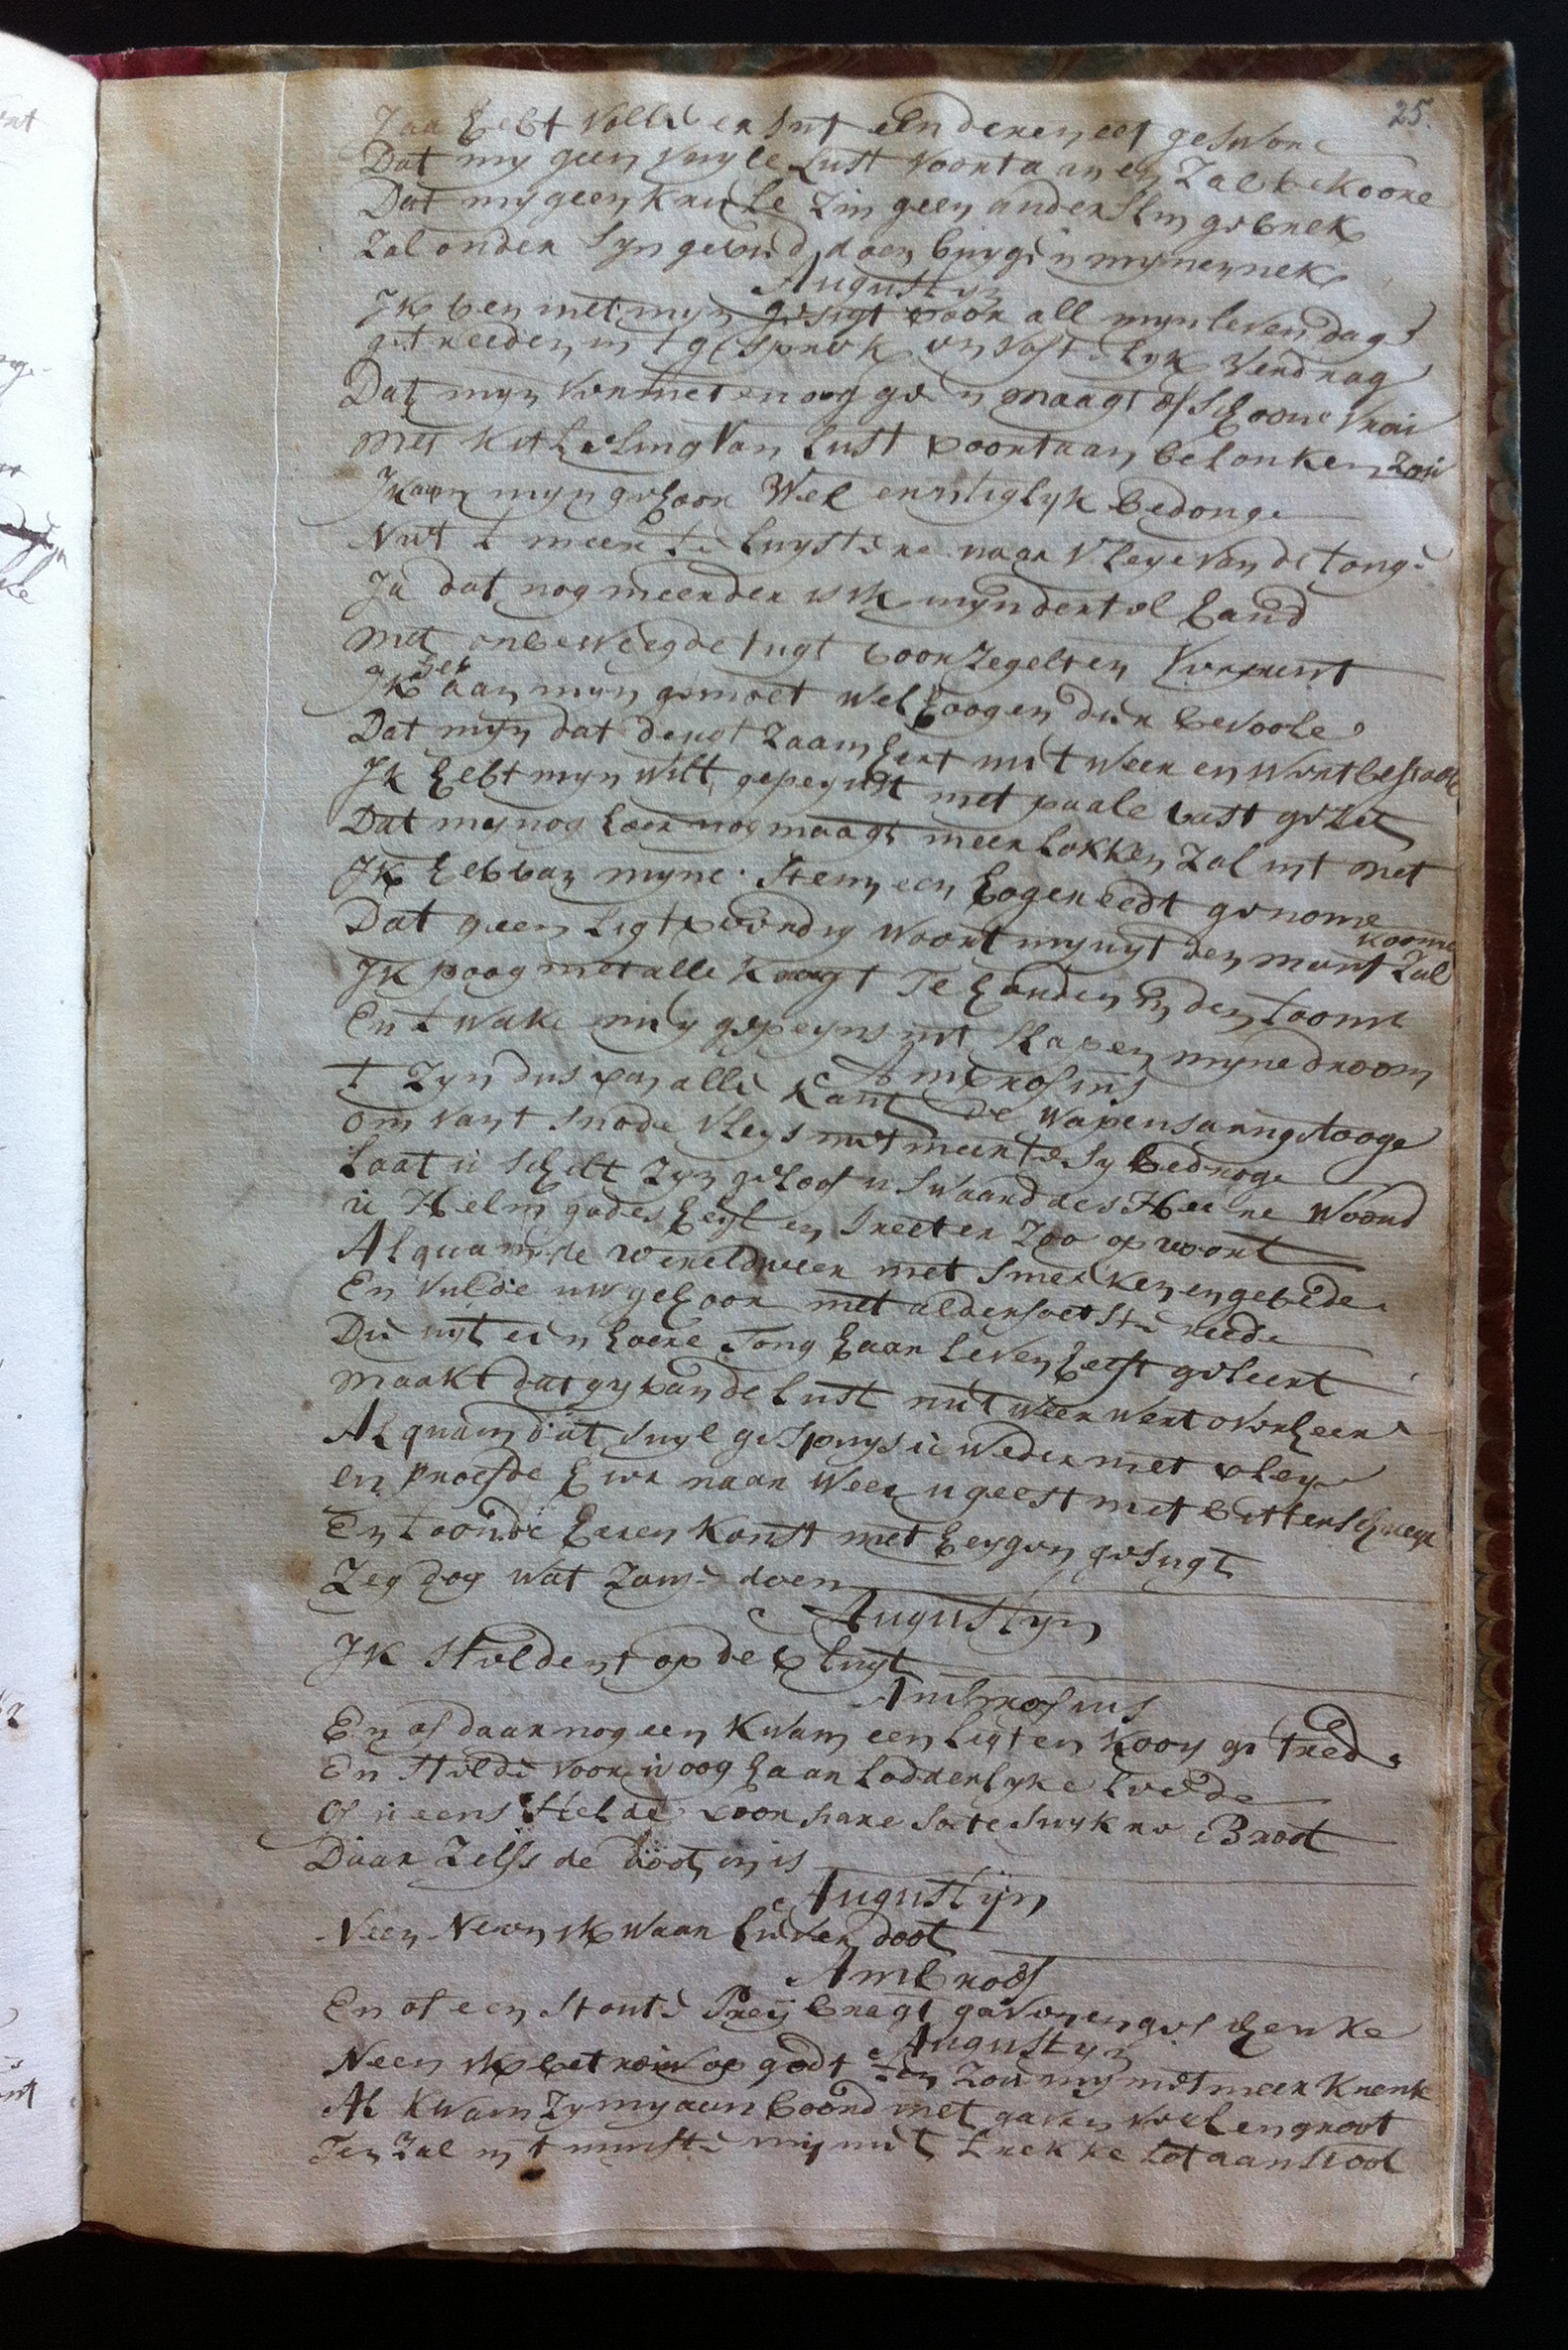 25.
Jaa hebt volle er snt een deneneet geswore
Dat my geen vuyle Lust voortaanen Zal bekoore
Dat my geen kruele Zin geen anderslin gebrek
Zal onder syn gebied doen buygen mynen nek
Augustyn
Ik ben met myn gesigt voor all myn leven dag
getreeden in t gesprek en vast elyk verdrag
Dat myn vermeten oog geen maagt of schoone vrou
met kitteling van Lust voortaan belonken zou
Ik aan myn gehoor Wel ernstiglyk bedonge
Niet t meer te luystere naar vleyevande tonge
Ja dat nog meerder is ik myn dertel hand
met onbeweegde tugt voor Zegelt en
Ik heb aan myn gemoet wel hoog en dier bevoole
Dat myn dat deugt Zaam hert niet weer en wort bestoole
Ik hebt myn wilt gepeynst met paale vast gezet
Dat my nog hoer nog maagt meer lokken Zal int net
Ik heb van myne stem een hogen eedt genome
Dat geen ligtveerdig woort my uyt den mont Zal
koome
Ik poog met alle kragt Te houden in den toom
En t wake mijn gepeyns int slapen myne droom
Ambrosius
t Zyn dus van alle kant de wapens aangetooge
om vant snode vleys niet meer te sy bedroge
Laat u schilt zyn geloof u swaard des Heere Woord
u Helm godes heyl en treet er Zoo op voort
Al quam de wereld weer met smeeken en gebede
En vulde uw gehoor met aldersoetste rede
Die uyt een hoere Tong haar leven heeft geleert
maakt dat gy van de lust niet weer wert overheert
Al quam dat vuyl gespuys u weder met vleye
en proefde hier naar weer u geest met bitter schreye
En toonde haren konst met heygen gesugt
Zeg dog wat Zouje doen
Augustyn
Ik steldent op de vlugt
Ambrosius
En of daar nog een kwam een ligten kooy getrede
En stelde voor u oog haar lodderlyke leede
Of u eens stelde voor hare soete suykre Broot
Daar Zelfs de doot in is
Augustijn
Neen Neen ik waar liever doot
Ambroos
En of een stoute Preij bragt gaven en geschenke
Augustyn
Neen ik betrouw op godt ten zou my niet meer krenke
Al kwam Zy my aan boord met gaven veel en groot
Ten Zal int minste mij niet trekke tot aanstoot